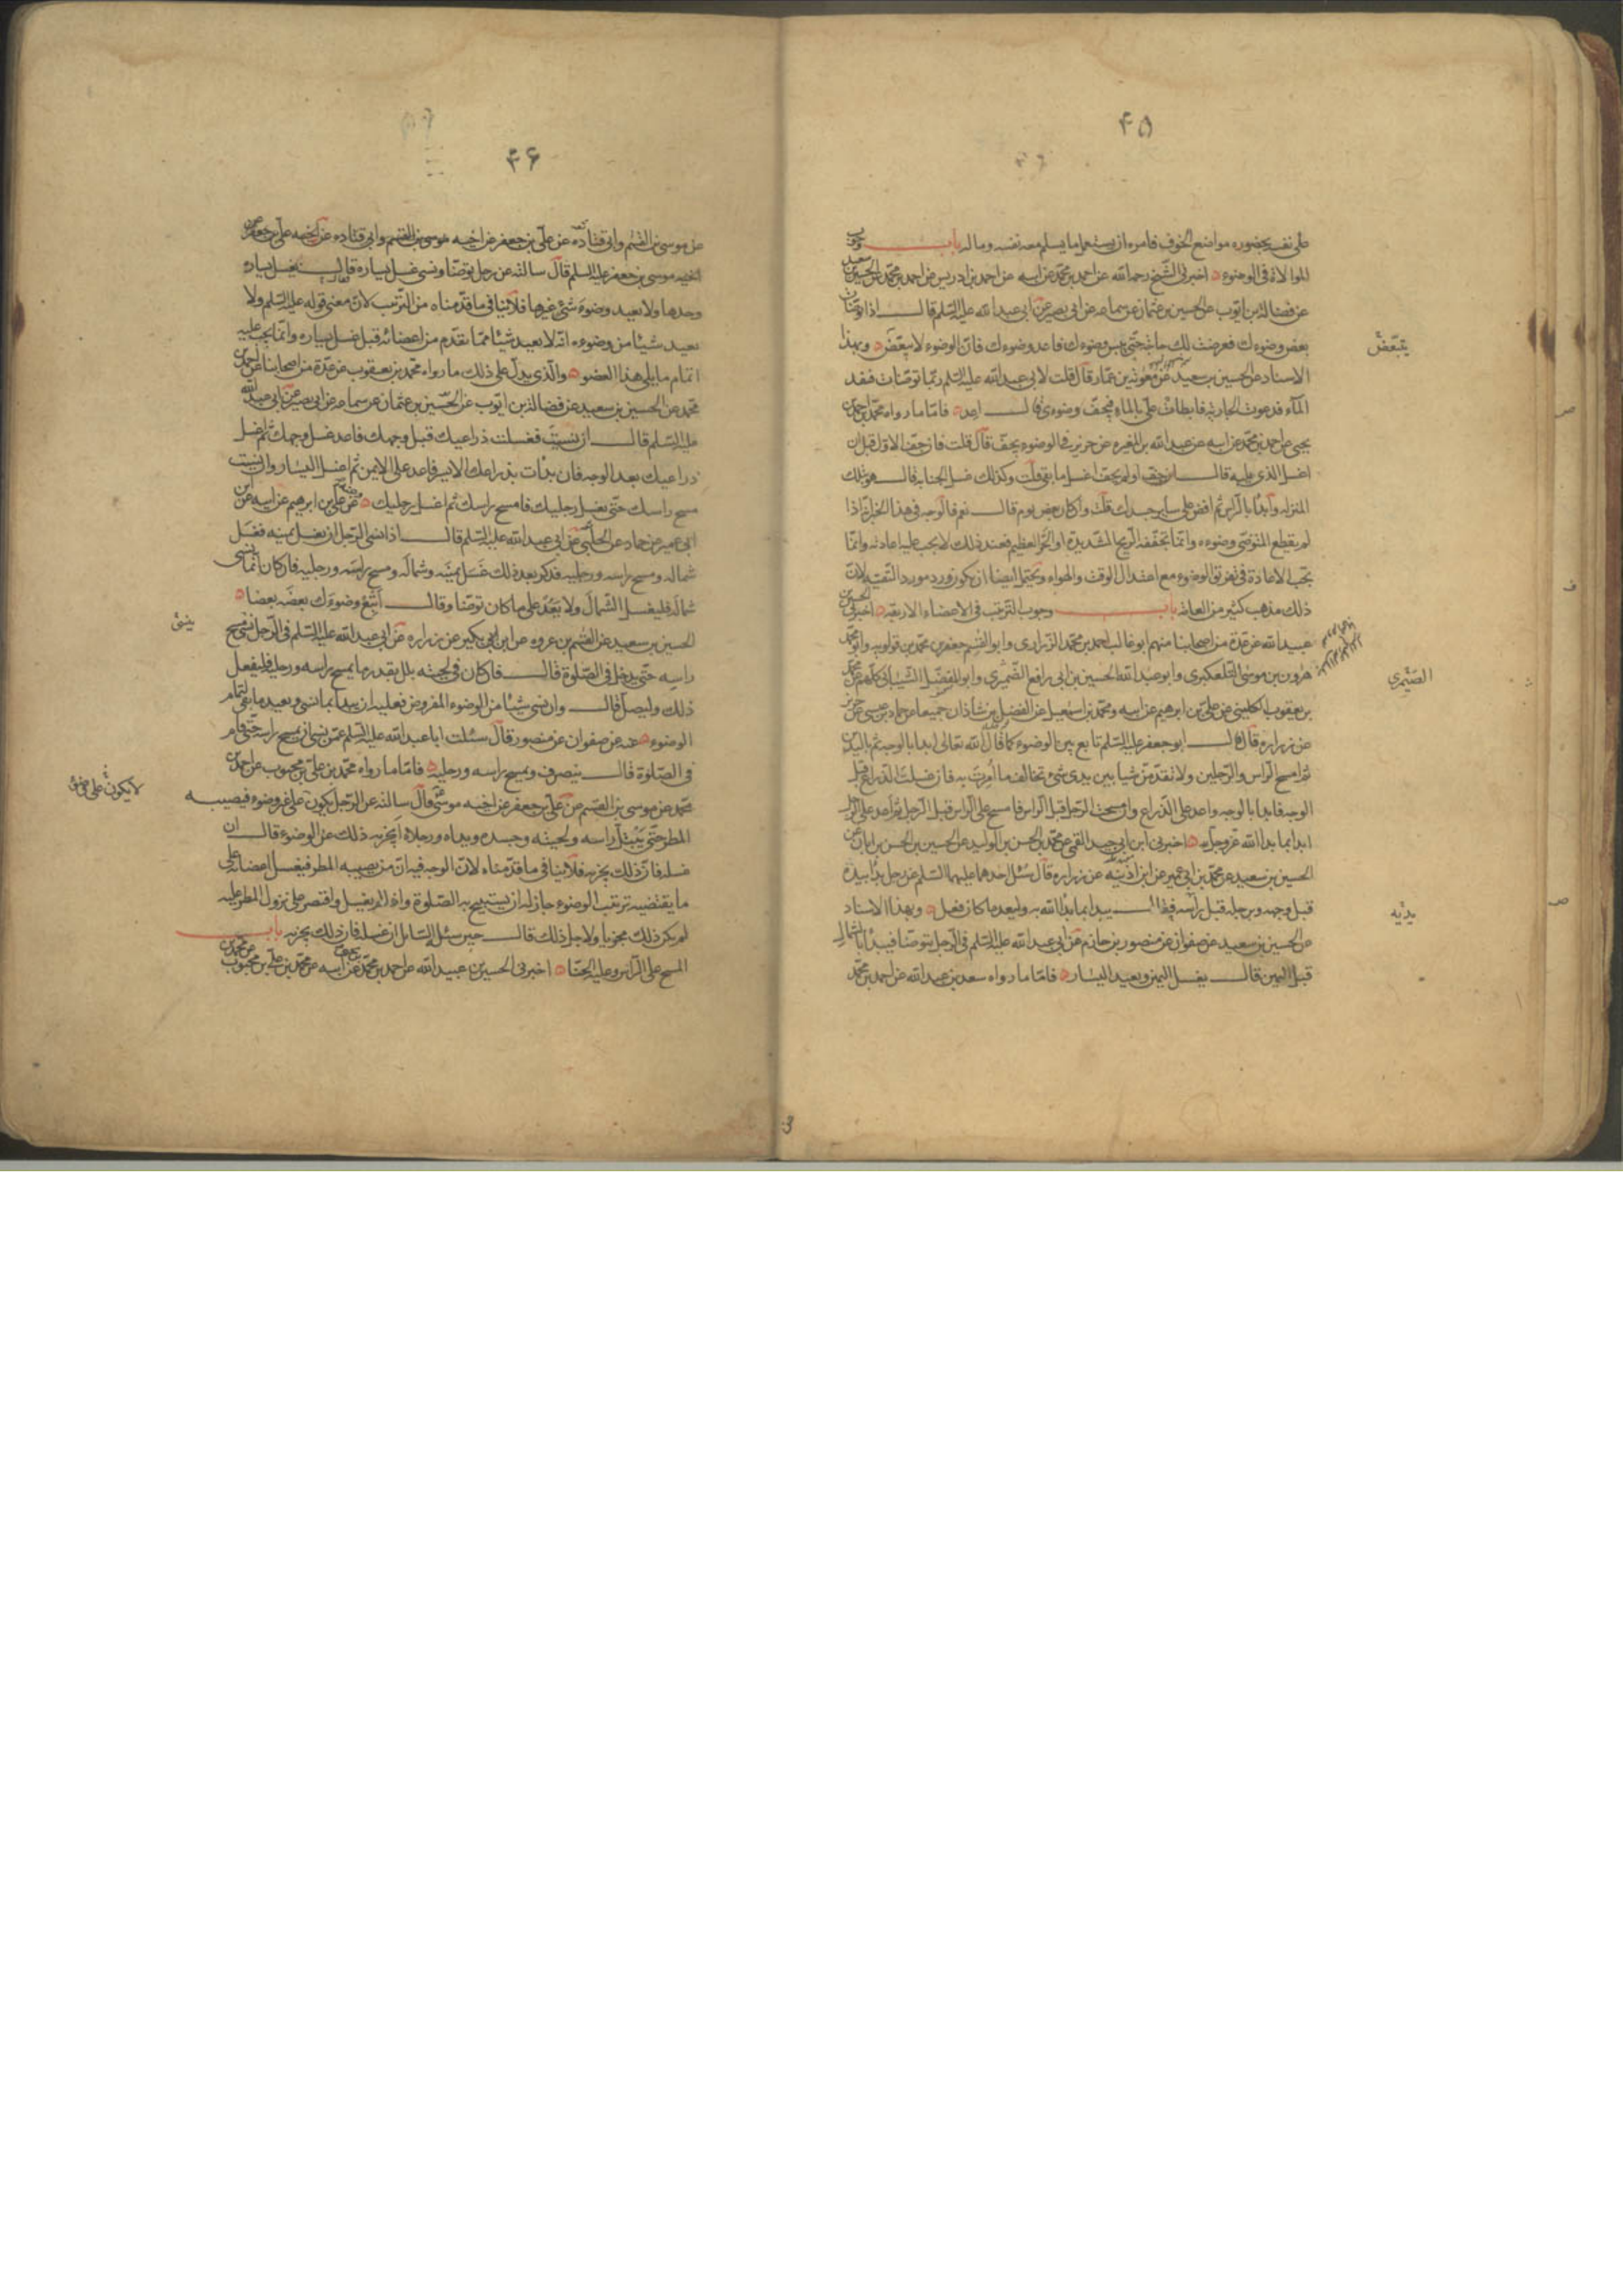 ۴۵
على نفسه بحضوره مواضع الخوف فامره ان يستعمل ما يسلم معه نفسه وماله باب وجوب
الموالاة فى الوضوء اخبرنى الشيخ رحمه الله عن احمد بن محمد عن ابيه عن احمد بن ادريس عن احمد بن محمد عن الحسين بن سعيد
عن فضالة بن ايوب عن الحسين بن عثمان عن سماعه عن ابى بصير عن ابى عبد الله عليه السلم قال اذا توضات
بعض وضوءك فعرضت لك حاجة حتى يبس وضوءك فاعد وضوءك فان الوضوء لا يبعض وبهذا
يتبعض
الاسناد عن الحسين بن سعيد عن معوية بن عمار قال قلت لابى عبد الله عليه السلم ربما توضات فنفد
المآء فدعوت الجارية فابطات على بالماء فيجف وضوءى قال اعد فاما ما رواه محمد بن احمد بن
يحيى عن احمد بن محمد عن ابيه عن عبد الله بن المغيره عن حريز فى الوضوء يجف قال قلت فان جف الاول قبل ان
اغسل الذى يليه قال اذا جف او لم يجف اغسل ما بقى قلت وكذلك غسل الجنابه قال هو بتلك
المنزله وابدا بالراس ثم افض على سائر جسدك قلت وان كان بعض يوم قال نعم فالوجه فى هذا الخبر انه اذا
لم يقطع المتوضى وضوءه وانما تجففه الريح الشديدة او الحر العظيم فعند ذلك لا يجب عليه اعادته وانما
تجب الاعادة فى تفريق الوضوء مع اعتدال الوقت والهواء ويحتمل ايضا ان يكون ورد مورد التقيه لان
ذلك مذهب كثير من العامة باب وجوب الترتيب فى الاعضاء الاربعه اخبرنى الحسين بن
عبيد الله عن عدة من اصحابنا منهم ابو غالب احمد بن محمد الزرارى وابو القسم جعفر بن محمد بن قولويه وابو محمد
هرون بن موسى التلعكبرى وابو عبد الله الحسين بن ابى رافع الصيمرى وابو المفضل الشيبانى كلهم عن محمد
الصيمرى
بن يعقوب الكلينى عن على بن ابرهيم عن ابيه ومحمد بن اسمعيل عن الفضل بن شاذان جميعا عن حماد بن عيسى عن حريز
عن زراره قال قال ابو جعفر عليه السلم تابع بين الوضوء كما قال الله تعالى ابدا بالوجه ثم باليدين
ثم امسح الراس والرجلين ولا تقدمن شيا بين يدى شئ تخالف ما امرت به فان غسلت الذراع قبل
الوجه فابدا بالوجه واعد على الذراع وان مسحت الرجل قبل الراس فامسح على الراس قبل الرجل ثم اعد على الرجل
ابدا بما بدا الله عز وجل به اخبرنى ابن ابى جيد القمى عن محمد بن الحسن بن الوليد عن الحسين بن الحسن بن ابان عن
الحسين بن سعيد عن محمد بن ابى عمير عن ابن اذينه عن زراره قال سئل احدهما عليهما السلم عن رجل بدا بيده
قبل وجهه وبرجليه قبل راسه قال يبدا بما بدا الله به وليعد ما كان فعل وبهذا الاسناد
بيديه
عن الحسين بن سعيد عن صفوان عن منصور بن حازم عن ابى عبد الله عليه السلم فى الرجل يتوضا فيبدا بالشمال
قبل اليمين قال يغسل اليمين ويعيد اليسار فاما ما رواه سعد بن عبد الله عن احمد بن محمد
۴۶
عن موسى بن القسم وابى قتاده عن على بن جعفر عن اخيه موسى بن القسم وابى قتاده عن اخيه على بن جعفر عن
اخيه موسى بن جعفر عليه السلم قال سالته عن رجل توضا ونسى غسل يساره قال يغسل يساره
وحدها ولا يعيد وضوء شئ غيرها فلا ينافى ما قدمناه من الترتيب لان معنى قوله عليه السلم ولا
يعيد شيئا من وضوءه انه لا يعيد شيئا مما تقدم من اعضائه قبل غسل يساره وانما يجب عليه
اتمام ما يلى هذا العضو والذى يدل على ذلك ما رواه محمد بن يعقوب عن عدة من اصحابنا عن احمد بن
محمد عن الحسين بن سعيد عن فضالة بن ايوب عن الحسين بن عثمان عن سماعه عن ابى بصير عن ابى عبد الله
عليه السلم قال ان نسيت فغسلت ذراعيك قبل وجهك فاعد غسل وجهك ثم اغسل
ذراعيك بعد الوجه فان بدات بذراعك الايسر فاعد على الايمن ثم اغسل اليسار وان نسيت
مسح راسك حتى تغسل رجليك فامسح راسك ثم اغسل رجليك عن على بن ابرهيم عن ابيه عن ابن
ابى عمير عن حماد عن الحلبى عن ابى عبد الله عليه السلم قال اذا نسى الرجل ان يغسل يمينه فغسل
شماله ومسح راسه ورجليه فذكر بعد ذلك غسل يمينه وشماله ومسح راسه ورجليه فان كان انما نسى
شماله فليغسل الشمال ولا يعيد على ما كان توضا وقال اتبع وضوءك بعضه بعضا
الحسين بن سعيد عن القسم بن عروه عن ابن بكير عن زراره عن ابى عبد الله عليه السلم فى الرجل نسى مسح
ينسى
راسه حتى يدخل فى الصلوة قال فان كان فى لحيته بلل بقدر ما يمسح راسه ورجليه فليفعل
ذلك وليصل قال وان نسى شيئا من الوضوء المفروض فعليه ان يبدا بما نسى ويعيد ما بقى لتمام
الوضوء عنه عن صفوان عن منصور قال سئلت ابا عبد الله عليه السلم عمن نسى ان يمسح راسه حتى قام
فى الصلوة قال ينصرف ويمسح راسه ورجليه فاما ما رواه محمد بن على بن محبوب عن احمد بن
محمد عن موسى بن القسم عن على بن جعفر عن اخيه موسى قال سالته عن الرجل يكون على غير وضوء فيصيبه
لا يكون على وضوء
المطر حتى يبتل راسه ولحيته وجسده ويداه ورجلاه ايجزيه ذلك عن الوضوء قال ان
غسله فان ذلك يجزيه فلا ينافى ما قدمناه لان الوجه فيه ان من يصيبه المطر فيغسل اعضاءه على
ما يقتضيه ترتيب الوضوء جاز له ان يستبيح به الصلوة واذا لم يغسل واقتصر على نزول المطر عليه
لم يكن ذلك مجزيا ولاجل ذلك قال حين سئل السائل ان غسله فان ذلك يجزيه باب
المسح على الراس وعليه الحنا اخبرنى الحسين بن عبيد الله عن احمد بن محمد بن يحيى عن ابيه عن محمد بن على بن محبوب